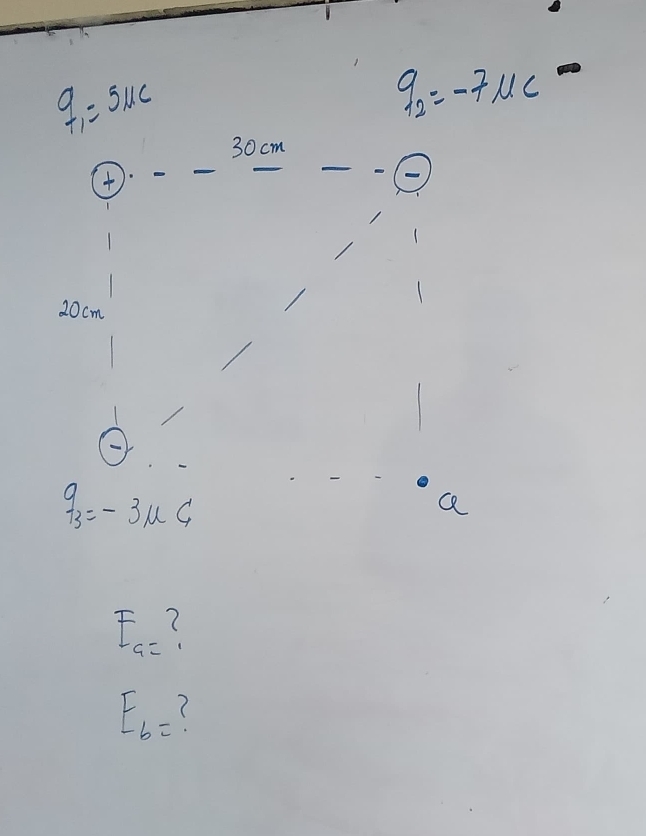 q₁= 5μC
q₂= -7μC
30cm
+
-
20cm
-
q₃= - 3μC
a
Ea=?
Eb=?